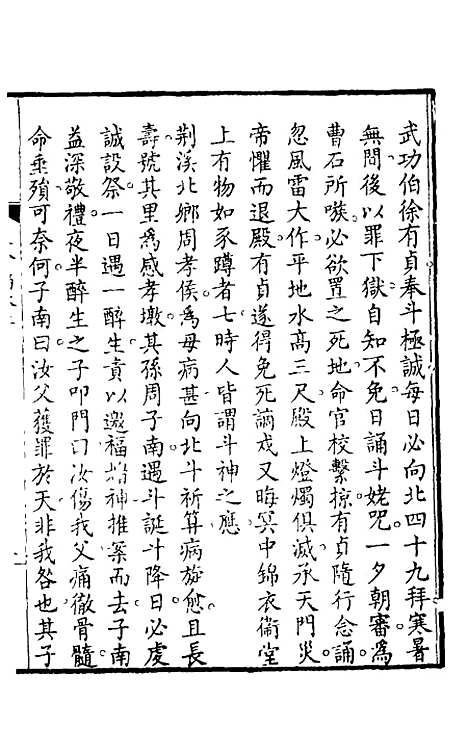 武功伯徐有貞奉斗極誠每日必向北四十九拜寒暑
無問後以罪下獄自知不免日誦斗姥咒一夕朝審爲
曹石所嗾必欲置之死地命官校繫掠有貞隨行念誦
忽風雷大作平地水高三尺殿上燈燭俱滅承天門災
帝懼而退殿有貞遂得免死謫戍又晦冥中錦衣衞堂
上有物如豕蹲者七時人皆謂斗神之應
荆溪北鄉周孝侯爲母病甚向北斗祈算病旋愈且長
壽號其里爲感孝墩其孫周子南遇斗誕斗降日必虔
誠設祭一日遇一醉生責以邀福媚神推案而去子南
益深敬禮夜半醉生之子叩門曰汝傷我父痛徹骨髓
命垂殞可奈何子南曰汝父獲罪於天非我咎也其子